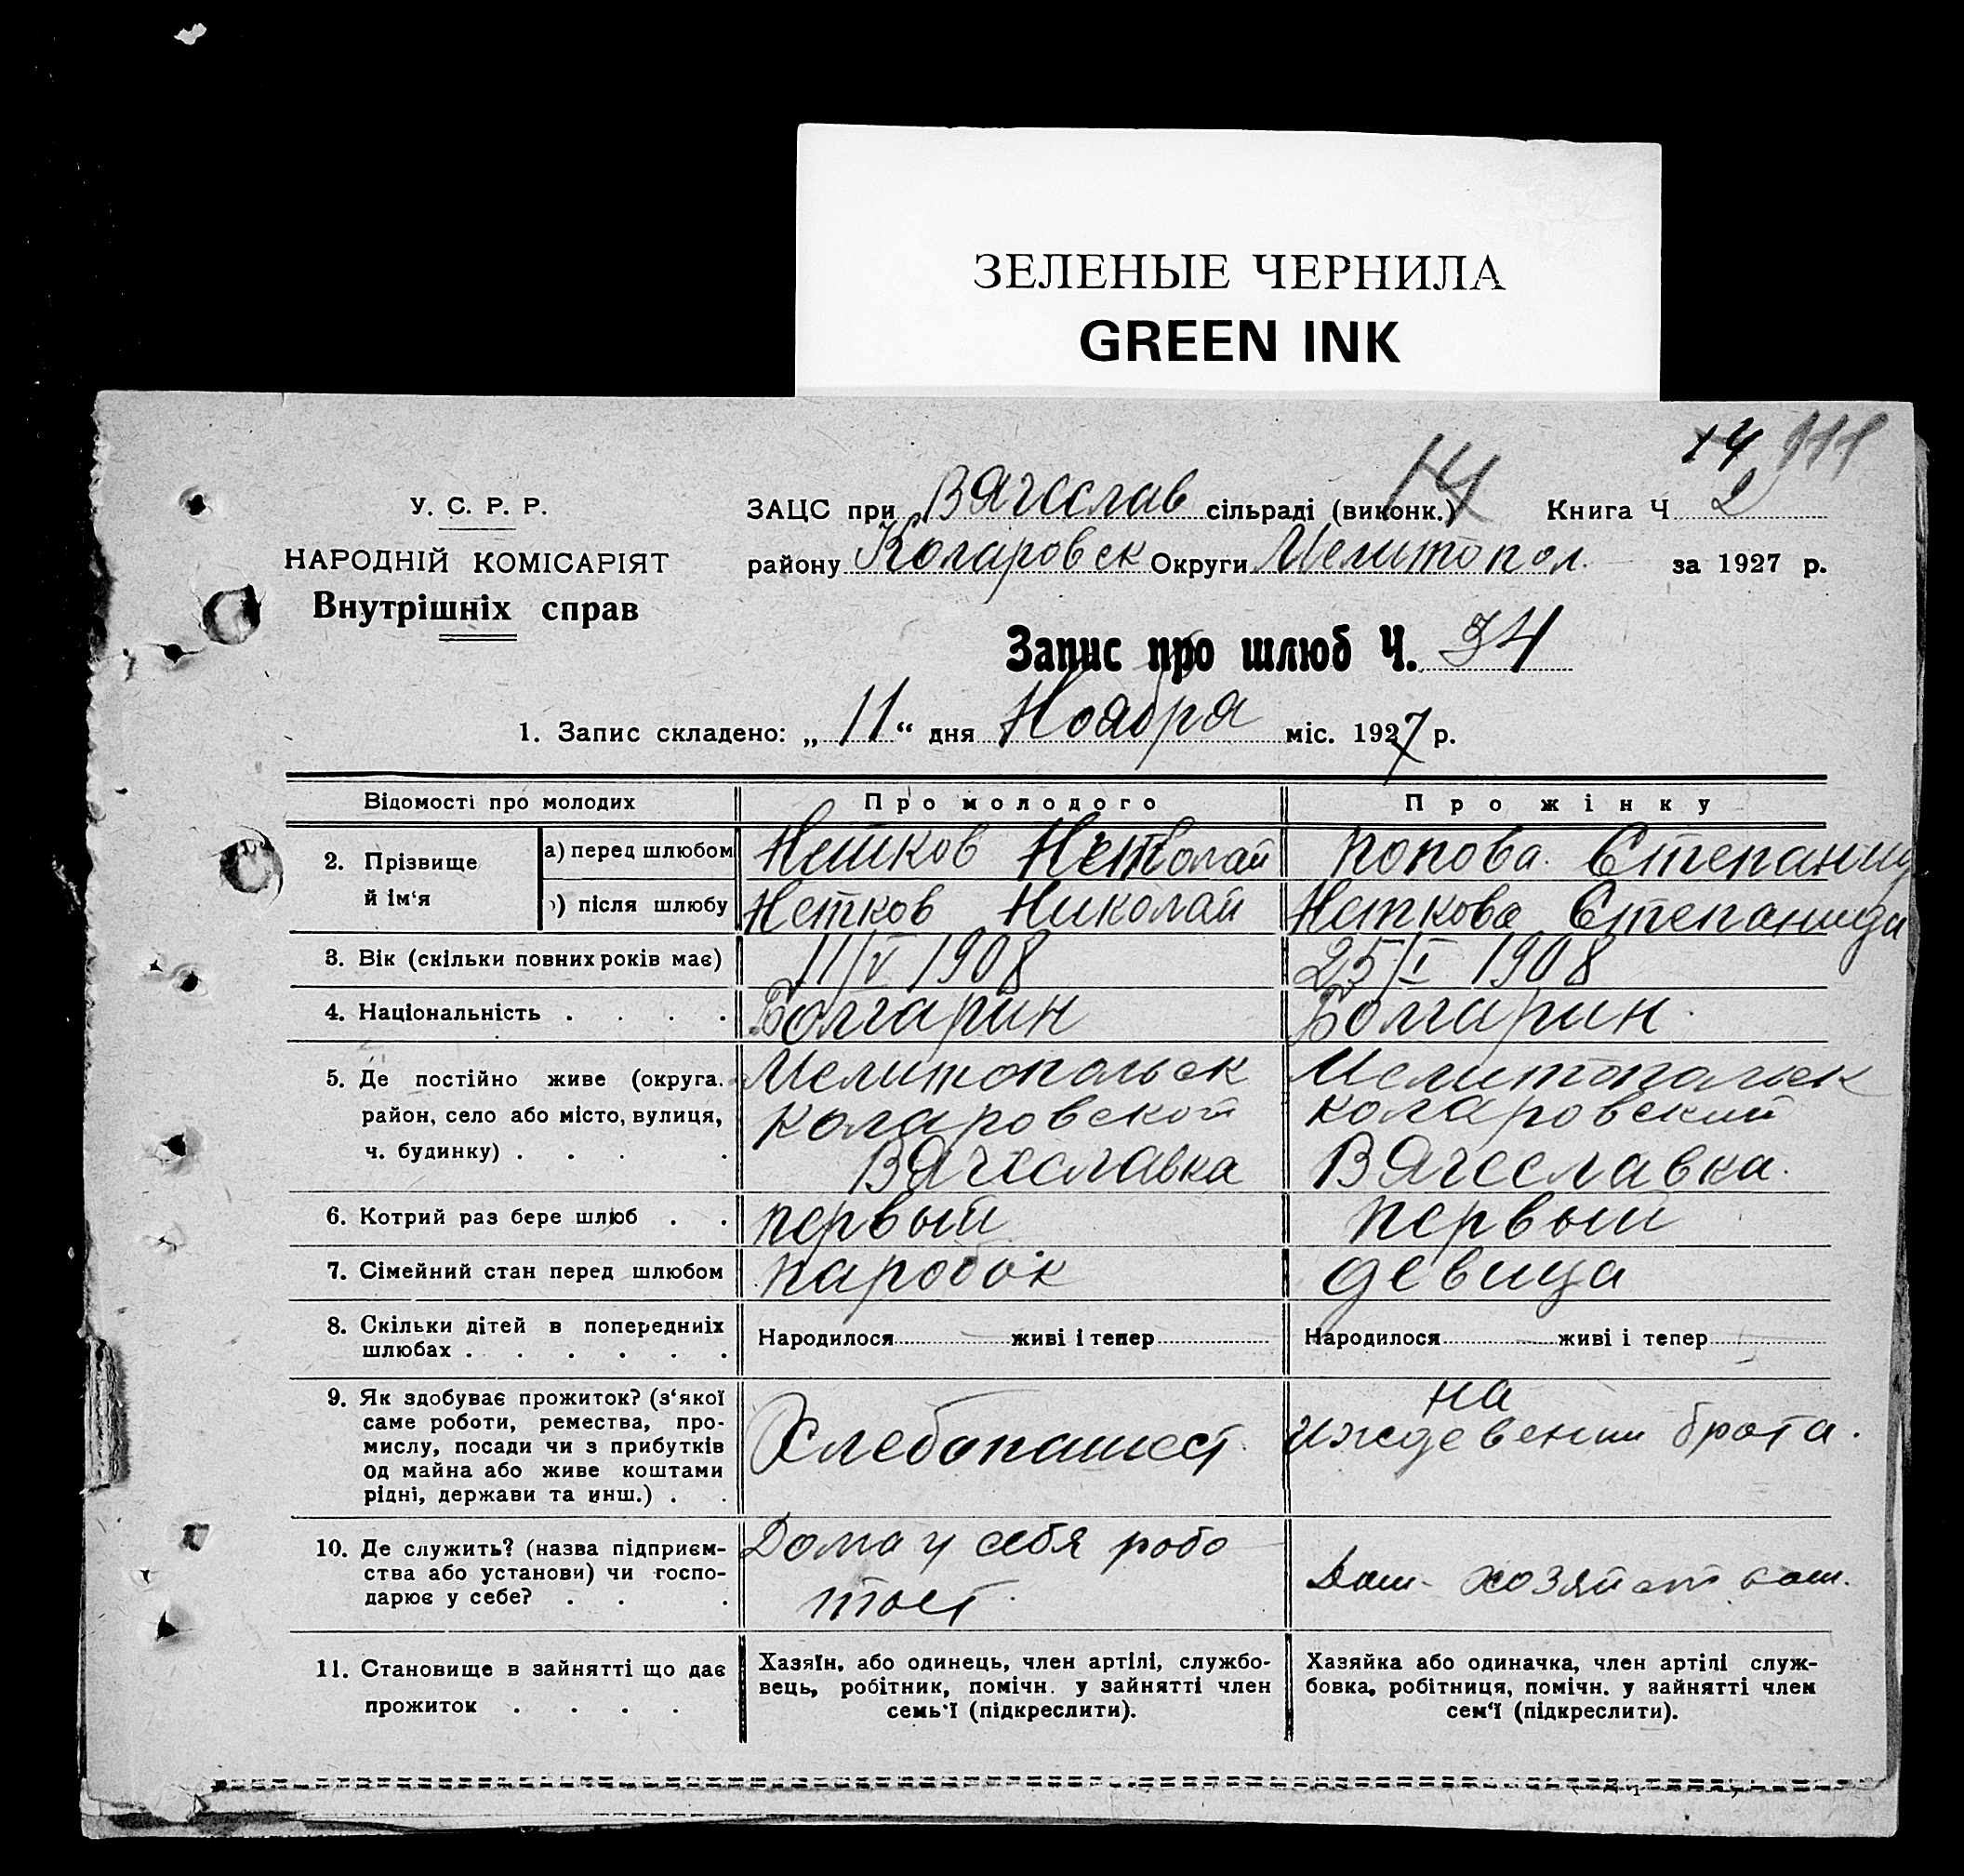 ЗЕЛЕНЫЕ ЧЕРНИЛА
GREEN INK
14
У. С. Р. Р.
НАРОДНІЙ КОМІСАРІЯТ
Внутрішніх справ
ЗАЦС при Вячеслав сільраді (виконк.) 14 Книга Ч 2
району Коларовск Округи Мелитопол. за 1927 р.
Запис про шлюб Ч. 34
1. Запис складено: „ 11 “ дня Ноября міс. 1927 р.
Відомості про молодих Про молодого Про жінку
2. Прізвище й ім‘я
а) перед шлюбом Нетков Николай Попова Степанид
) після шлюбу Нетков Николай Неткова Степанида
3. Вік (скільки повних років має) 11/V 1908 25/I 1908
4. Національність . . . . Болгарин Болгарин.
5. Де постійно живе (округа. Мелитопольск Мелитопольск
район, село або місто, вулиця, Коларовской Коларовский
ч. будинку) . . . . Вячеславка Вячеславка.
6. Котрий раз бере шлюб . . первый первый
7. Сімейний стан перед шлюбом паробок девица
8. Скільки дітей в попередниіх
шлюбах . . . . . . Народилося живі і тепер Народилося живі і тепер
9. Як здобуває прожиток? (з‘якої
саме роботи, ремества, про-
мислу, посади чи з прибутків
од майна або живе коштами
рідні, держави та инш.) . .
Хлебопашест.
на
иждевении брата.
10. Де служить? (назва підприєм-
ства або установи) чи госпо-
дарює у себе? . . .
Дома у себя робо
тает.
Дом-
11. Становище в зайнятті що дає
прожиток . . . .
Хазяїн, або одинець, член артілі, службо-
вець, робітник, помічн. у зайнятті член
семь‘ї (підкреслити).
Хазяйка або одиначка, член артілі служ-
бовка, робітниця, помічн. у зайнятті член
сем‘ї (підкреслити).